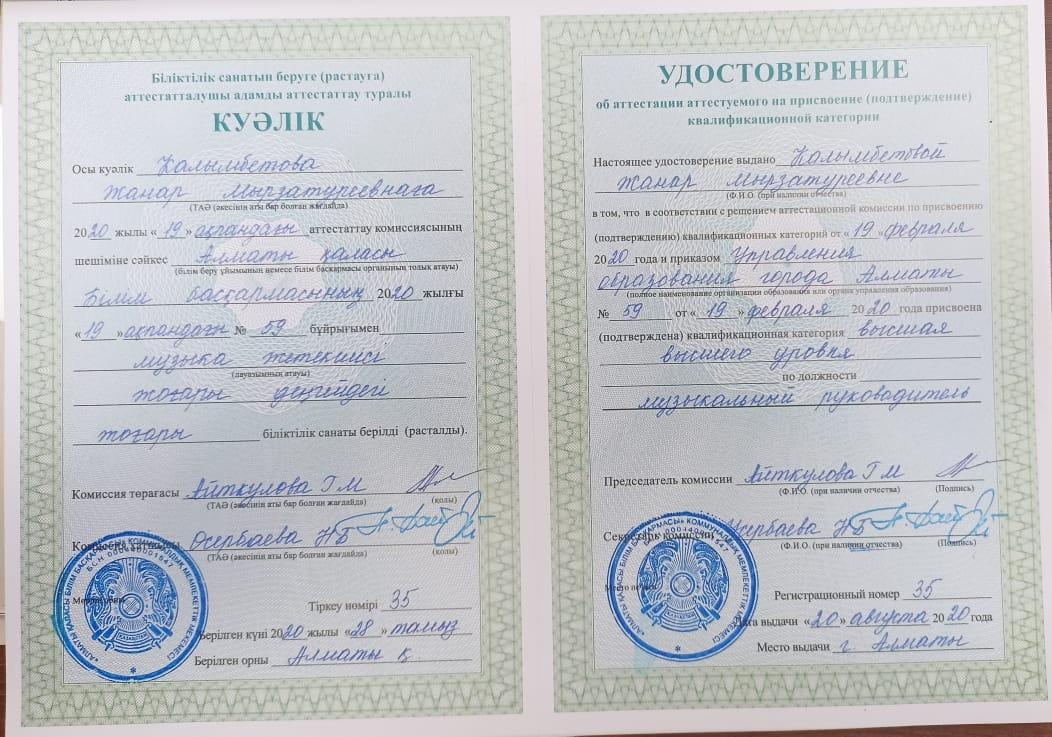 Біліктілік санатын беруге (растауға)
аттестатталушы адамды аттестаттау туралы
КУӘЛІК
Осы куәлік Калымбетова
Жанар Мырзатуреевнаға
(ТАӘ (әкесінің аты бар болған жағдайда)
2020 жылы «19» ақпандағы аттестаттау комиссиясының
шешіміне сәйкес Алматы қаласы
(білім беру ұйымының немесе білім басқармасы органының толық атауы)
Білім басқармасының 2020 жылғы
«19» ақпандағы № 59 бұйрығымен
музыка жетекшісі
(лауазымның атауы)
жоғары деңгейдегі
жоғары біліктілік санаты берілді (расталды).
Комиссия төрағасы Айткулова Г М
(ТАӘ (әкесінің аты бар болған жағдайда) (қолы)
Н Б
(ТАӘ (әкесінің аты бар болған жағдайда) (қолы)
Тіркеу нөмірі 35
Берілген күні 2020 жылы «28» тамыз
Берілген орны Алматы қ.
УДОСТОВЕРЕНИЕ
об аттестации аттестуемого на присвоение (подтверждение)
квалификационной категории
Настоящее удостоверение выдано Калымбетовой
Жанар Мырзатуреевне
(Ф.И.О. (при наличии отчества)
в том, что в соответствии с решением аттестационной комиссии по присвоению
(подтверждению) квалификационных категорий от «19» февраля
2020 года и приказом Управления
образования города Алматы
(полное наименование организации образования или органа управления образования)
№ 59 от «19» февраля 2020 года присвоена
(подтверждена) квалификационная категория высшая
высшего уровня
по должности
музыкальный руководитель
Председатель комиссии Айткулова Г М
(Ф.И.О. (при наличии отчества) (Подпись)
Секретарь комиссии Н Б
(Ф.И.О. (при наличии отчества) (Подпись)
Регистрационный номер 35
Дата выдачи «20» августа 2020 года
Место выдачи г. Алматы